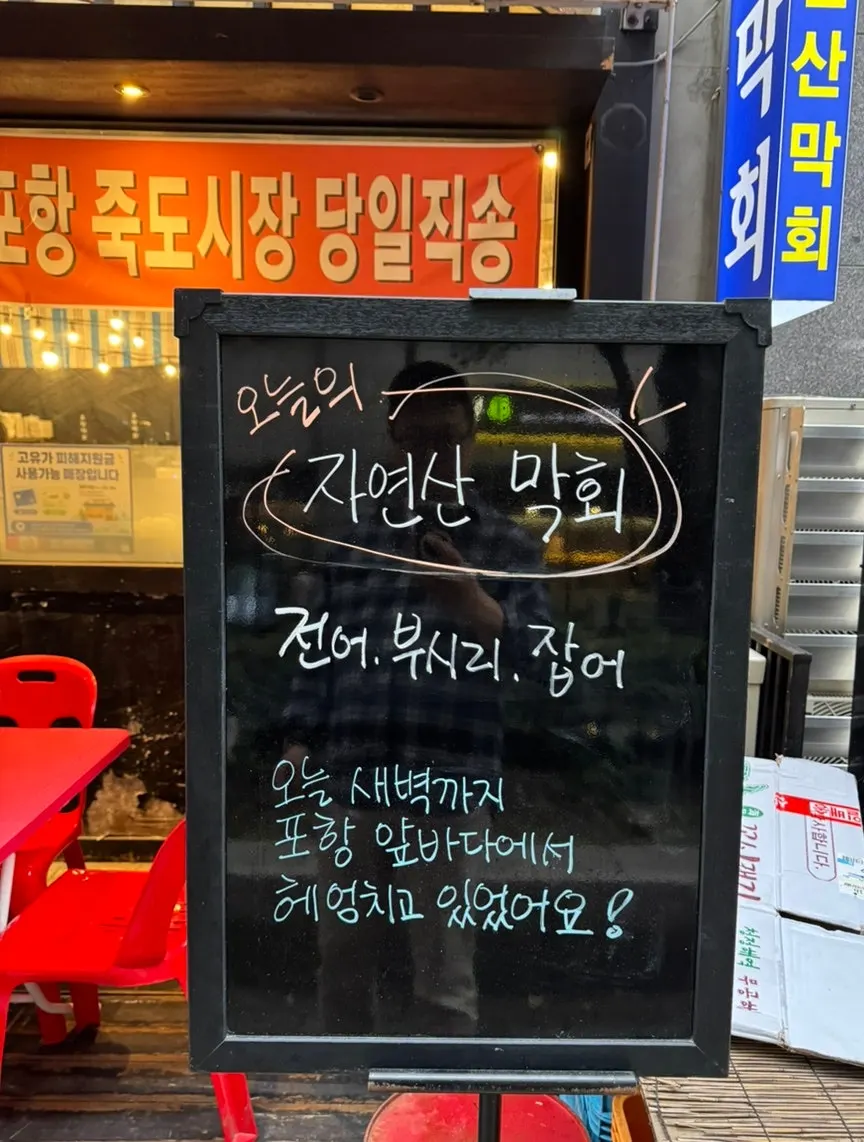 포항 죽도시장 당일직송
막회
산막회
고유가 피해지원금
사용가능 매장입니다
오늘의
자연산 막회
전어. 부시리. 잡어
오늘 새벽까지
포항 앞바다에서
헤엄치고 있었어요!